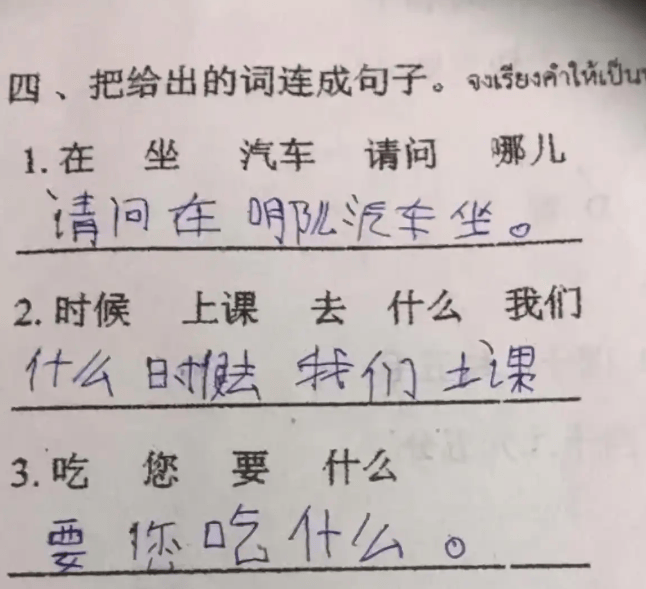 四、把给出的词连成句子。จงเรียงคำให้เป็น
1. 在 坐 汽车 请问 哪儿
请问在哪儿汽车坐。
2. 时候 上课 去 什么 我们
什么时候去我们上课
3. 吃 您 要 什么
要您吃什么。